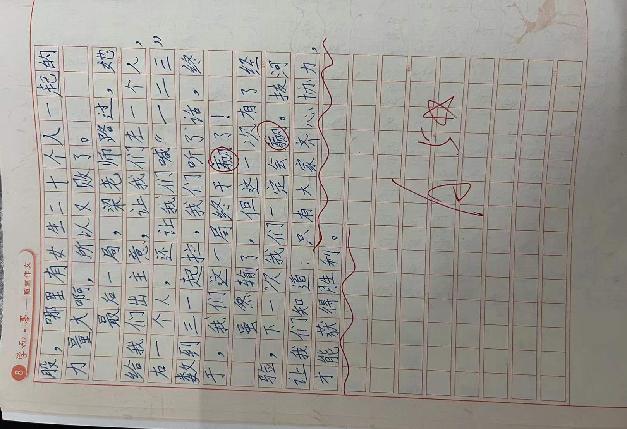 8
股，哪里有女生三十个人一起的
力量大啊，所以又败了。
最后一局，梁老师路过，她
给我们出主意，让我们左一个人，
右一个人，还让我们喊“一二三”，
数到三一起拉，我们听了话，终
于，我们这一终于赢了！
虽然输了，但这一次有了经
验，下一次我们一定会赢。拔河
让我们知道：只有大家齐心协力，
才能获得胜利。
5☆